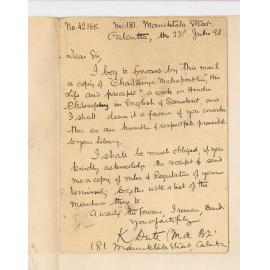 No. 42165. No. 181. Manicktola Street.
Calcutta, the 23d July 92.
Dear Sir,
I beg to forward by this mail
a copy of "Chaitanya Mahaprabhu, his
Life and precepts" a work on Hindu
Philosophy in English & Sanskrit, and
I shall deem it a favor if you consider
this as an humble & respectful present
to your library.
I shall be much obliged, if you
kindly acknowledge the receipt & send
me a copy of rules & Regulations of your
University together with a list of the
members
Awaiting the favour, I remain, Dear
Yours faithfully
K Dutt (M.A. B.L.
181. Manicktola Street, Calcutta